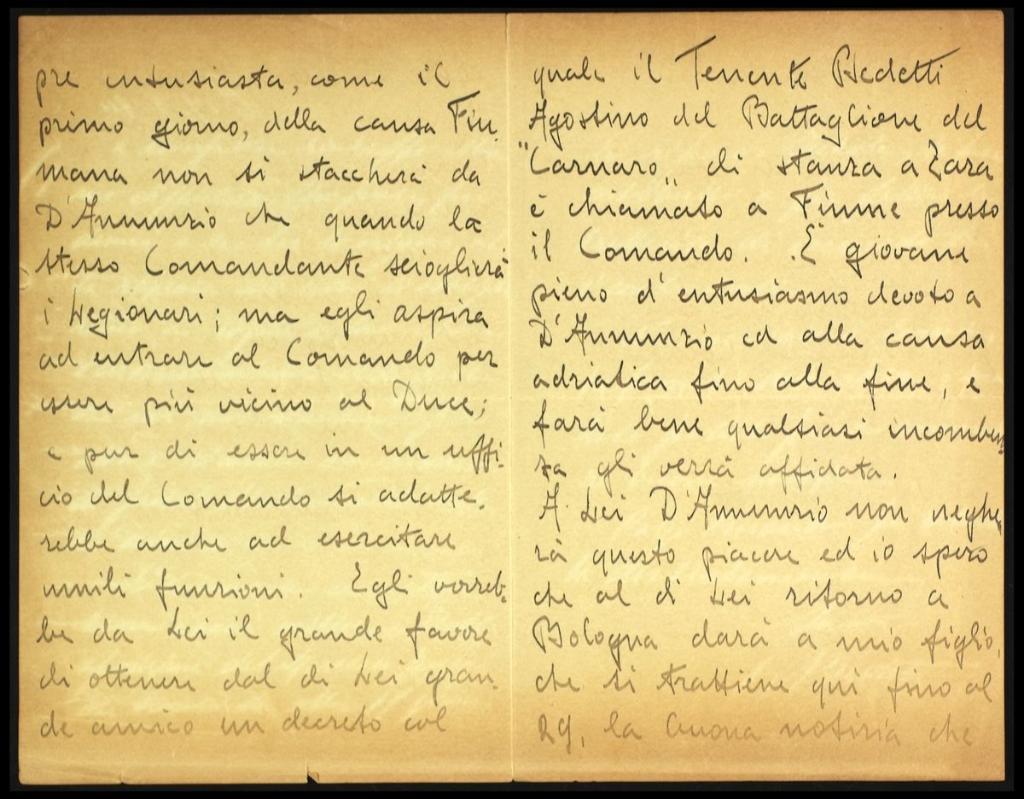 pre entusiasta, come il
primo giorno, della causa Fiu,
mana non si staccherà da
D'Annunzio che quando lo
stesso Comandante scioglierà
i Legionari; ma egli aspira
ad entrare al Comando per
essere più vicino al Duce;
e pur di essere in un uffi,
cio del Comando si adatte,
rebbe anche ad esercitare
umili funzioni. Egli vorreb,
be da Lei il grande favore
di ottenere dal di Lei gran,
de amico un decreto col
quale il Tenente
Agostino del Battaglione del
"Carnaro" di stanza a Zara
è chiamato a Fiume presso
il Comando. È giovane
pieno d'entusiasmo devoto a
D'Annunzio ed alla causa
adriatica fino alla fine, e
farà bene qualsiasi incomben
za gli verrà affidata.
A Lei D'Annunzio non neghe,
rà questo piacere ed io spero
che al di Lei ritorno a
Bologna darà a mio figlio,
che si trattiene qui fino al
29, la buona notizia che